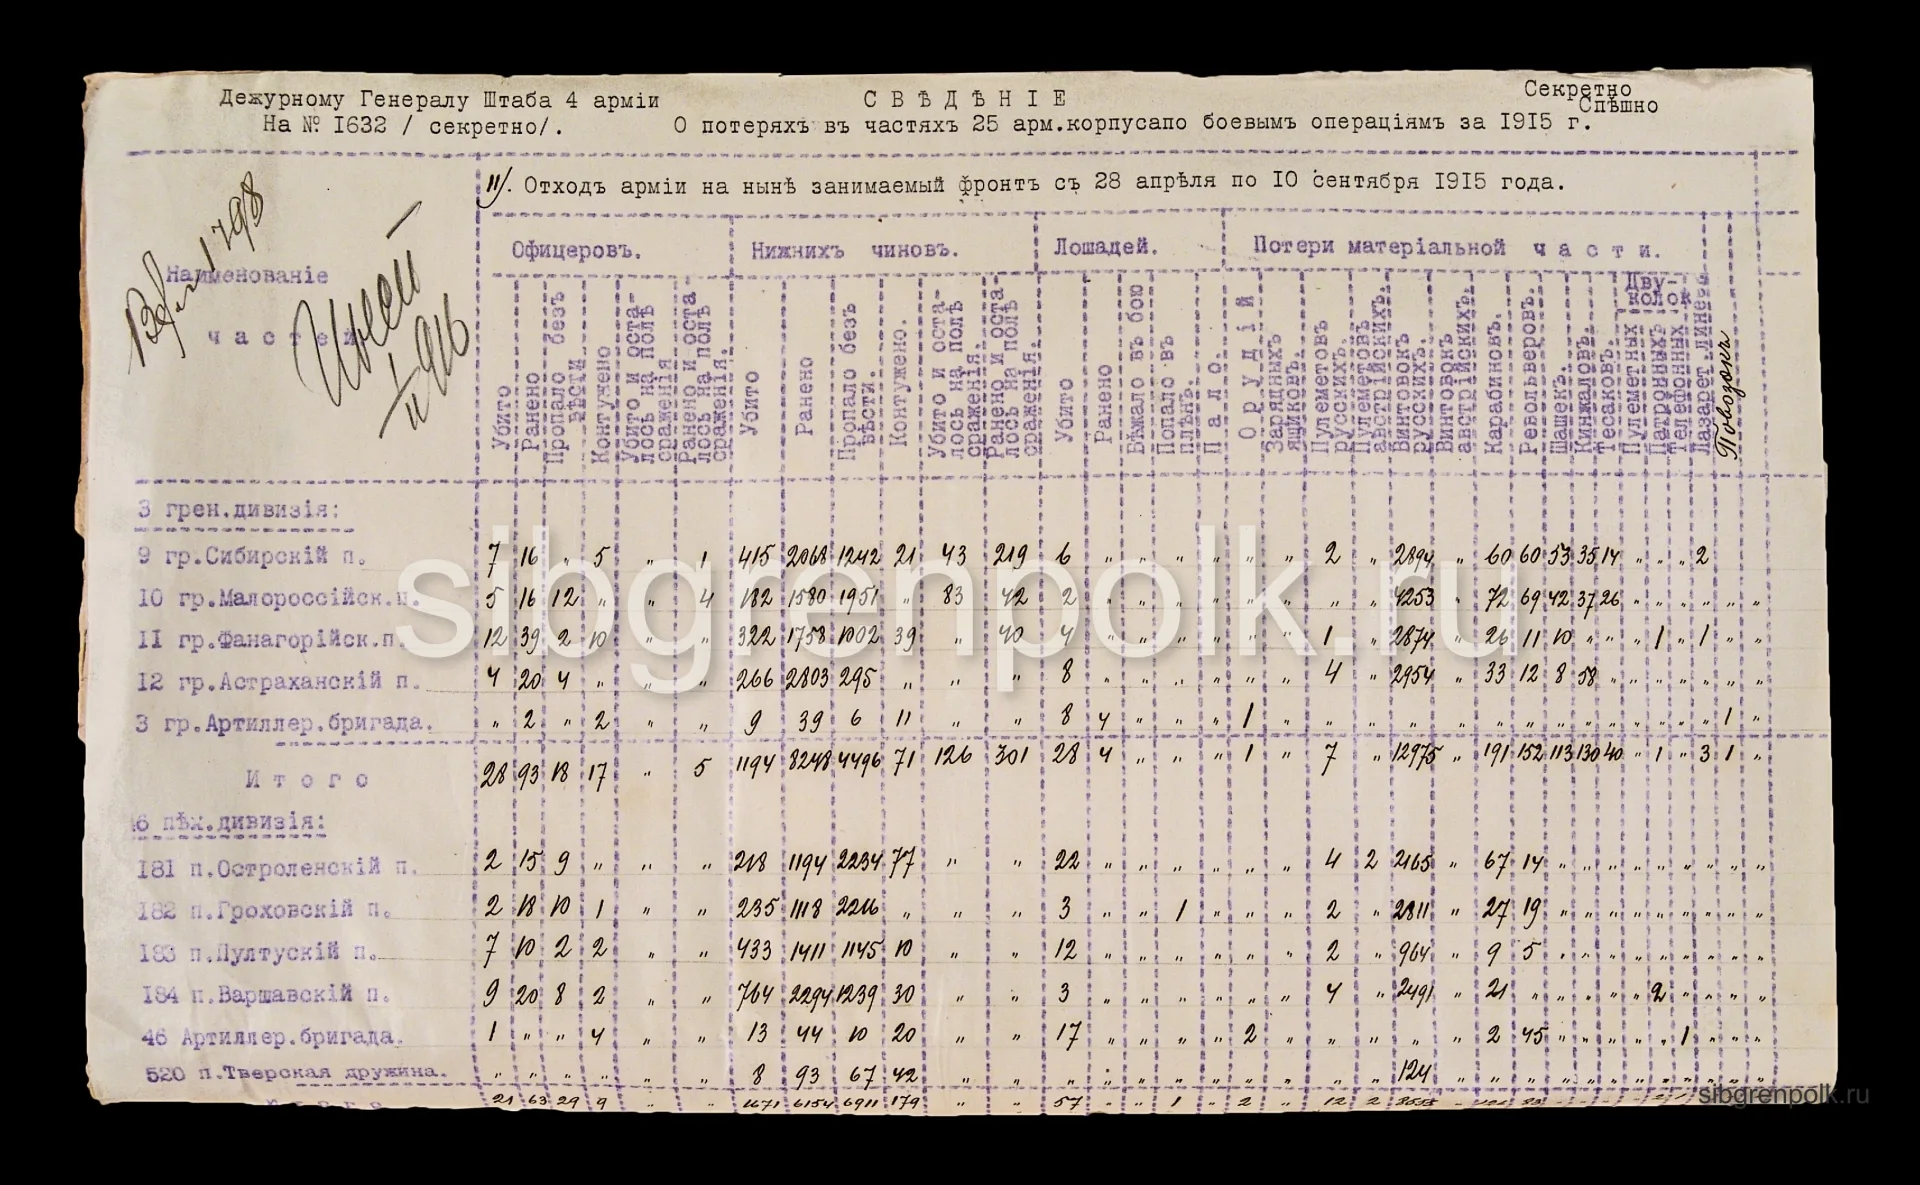 Дежурному Генералу Штаба 4 арміи
С В Ѣ Д Ѣ Н І Е
Секретно
Спѣшно
На № I632 / секретно/.
О потеряхъ въ частяхъ 25 арм.корпусапо боевымъ операціямъ за I9I5 г.
II/. Отходъ арміи на нынѣ занимаемый фронтъ съ 28 апрѣля по IO сентября I9I5 года.
1798
Наименованіе
ч а с т е й
Офицеровъ.
Нижнихъ чиновъ.
Лошадей.
Потери матеріальной ч а с т и.
Убито
Ранено
Пропало безъ вѣсти
Контужено
Убито и оста-лось на полѣ сраженія
Ранено и оста-лось на полѣ сраженія.
Убито
Ранено
Пропало безъ вѣсти.
Контужено.
Убито и оста-лось на полѣ сраженія.
Ранено и оста-лось на полѣ сраженія.
Убито
Ранено
Бѣжало въ бою
Попало въ плѣнъ.
П а л о.
О р у д і й
Зарядныхъ ящиковъ.
Пулеметовъ русскихъ.
Пулеметовъ австрійскихъ.
Винтовокъ русскихъ.
Винтовокъ австрійскихъ.
Карабиновъ.
Револьверовъ.
Шашекъ.
Кинжаловъ.
Тесаковъ.
Дву-колок
Пулеметныхъ
Патронныхъ
Телефонныхъ
Лазарет.линеек
Повозокъ
3 грен.дивизія:
9 гр.Сибирскій п. 7 16 " 5 " 1 415 2068 1242 21 43 219 6 " " " " " " 2 " 2894 " 60 60 53 35 14 " " " 2
IO гр.Малороссійск.п. 5 16 12 " " 4 182 1580 1951 " 83 42 2 " " " " " " " " 4253 " 72 69 42 37 26 " " " " " "
II гр.Фанагорійск.п. 12 39 2 10 " " 322 1758 1002 39 " 40 4 " " " " " " 1 " 2874 " 26 11 10 " " " 1 " 1 " "
I2 гр.Астраханскій п. 4 20 4 " " " 266 2803 295 " " " 8 " " " " " " 4 " 2954 " 33 12 8 58 " " " " " " "
3 гр.Артиллер.бригада. " 2 " 2 " " 9 39 6 11 " " 8 4 " " " 1 " " " " " " " " " " " " " " 1 "
И т о г о 28 93 18 17 " 5 1194 8248 4496 71 126 301 28 4 " " " 1 " 7 " 12975 " 191 152 113 130 40 " 1 " 3 1 "
46 пѣх.дивизія:
I8I п.Остроленскій п. 2 15 9 " " " 218 1194 2234 77 " " 22 " " " " " " 4 2 2165 " 67 14 " " " " " " " " "
I82 п.Гроховскій п. 2 18 10 1 " " 235 1118 2216 " " " 3 " " 1 " " " 2 " 2811 " 27 19 " " " " " " " " "
I83 п.Пултускій п. 7 10 2 2 " " 433 1411 1145 10 " " 12 " " " " " " 2 " 964 " 9 5 " " " " " " " " "
I84 п.Варшавскій п. 9 20 8 2 " " 764 2294 1239 30 " " 3 " " " " " " 4 " 2491 " 21 " " " " " 2 " " " "
46 Артиллер.бригада. 1 " " 4 " " 13 44 10 20 " " 17 " " " " 2 " " " " " 2 45 " " " " " 1 " " "
520 п.Тверская дружина. " " " " " " 8 93 67 42 " " " " " " " " " " " 124 " " " " " " " " " " " "
21 63 29 9 " " 1671 6154 6911 179 " " 57 " " 1 " 2 " 12 2
sibgrenpolk.ru
sibgrenpolk.ru